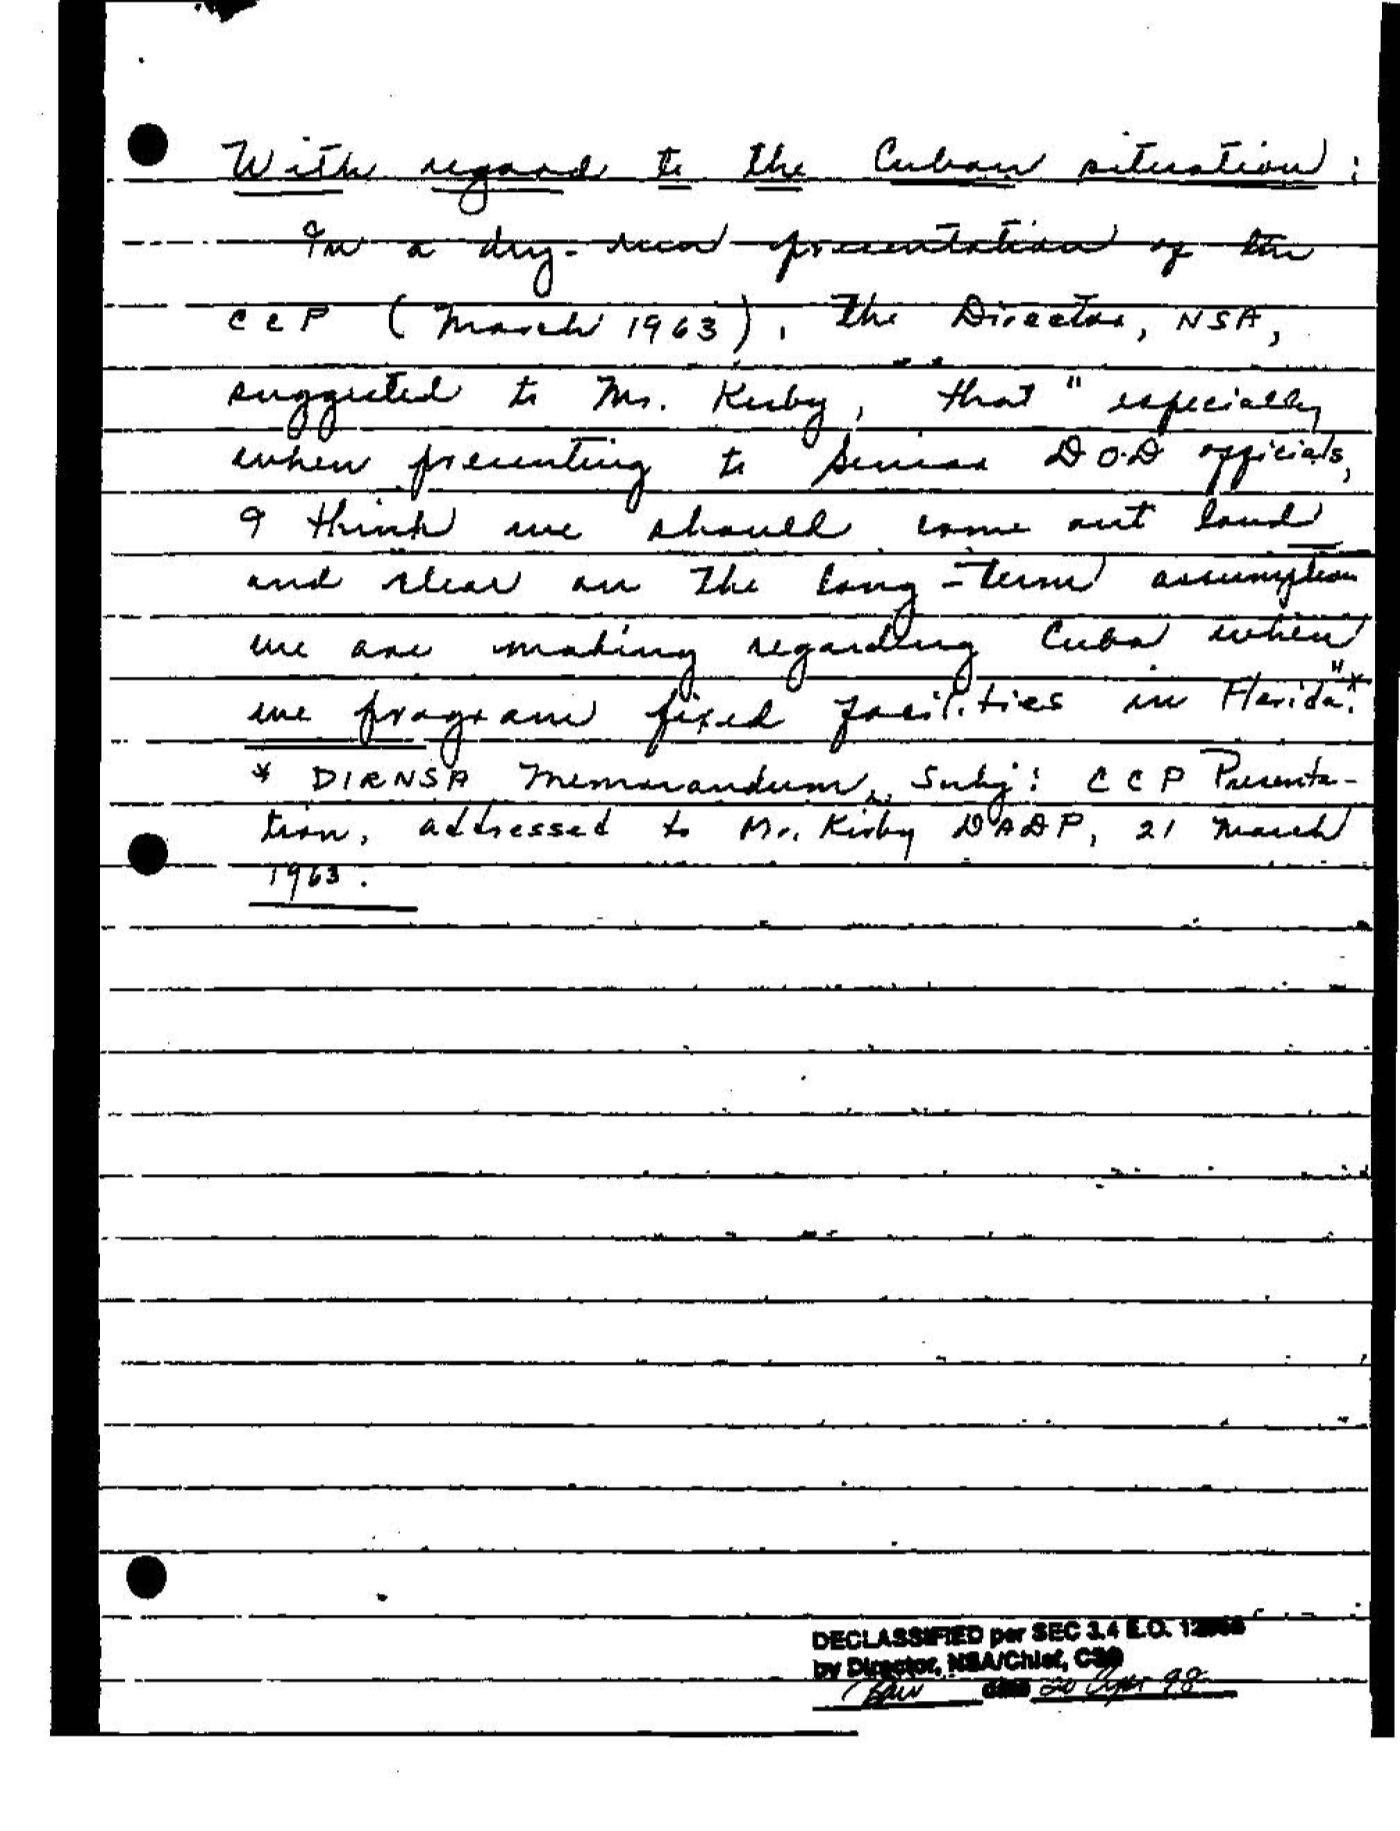 With regard to the Cuban situation:
In a dry-run presentation of the
CCP (March 1963), the Director, NSA,
suggested to Mr. Kirby, that "especially
when presenting to Senior DOD officials,
I think we should come out loud
and clear on the long-term assumption
we are making regarding Cuba when
we program fixed facilities in Florida."*
* DIRNSA Memorandum, Subj: CCP Presenta-
tion, addressed to Mr. Kirby DADP, 21 March
1963.
DECLASSIFIED per SEC 3.4 E.O.
by Director, NSA/Chief, CSS
date 20 Apr 98